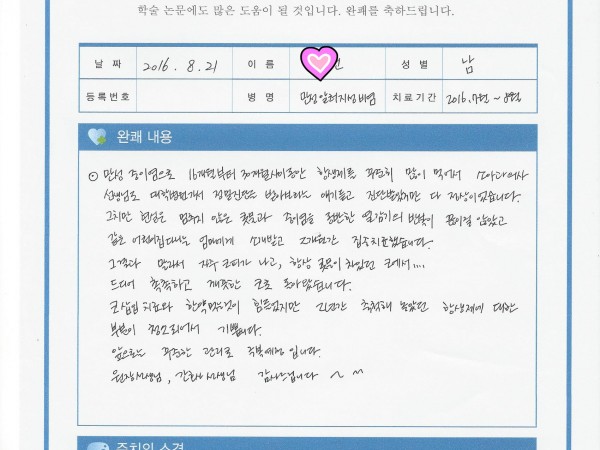 학술 논문에도 많은 도움이 될 것입니다. 완쾌를 축하드립니다.
날 짜 2016. 8. 21 이 름 성 별 남
등록번호 병 명 만성알러지성비염 치료기간 2016.7월 ~ 8월
완쾌 내용
⊙ 만성 중이염으로 16개월부터 30개월사이동안 항생제를 꾸준히 많이 먹어서 소아과의사
선생님도 대학병원가서 정밀진단을 받아보라는 얘기듣고 진단받았지만 다 정상이었습니다.
그치만 현실은 멈추지 않은 콧물과 중이염을 동반한 열감기의 반복이 끊이질 않았고
같은 어린이집다니는 엄마에게 소개받고 2개월간 집중치료했습니다.
그결과 말라서 자주 코피가 나고, 항상 콧물이 차있던 코에서....
드디어 촉촉하고 깨끗한 코로 돌아왔습니다.
코삽입치료와 한약먹는것이 힘들었지만 2년간 축적해 놓았던 항생제에 대한
부분이 청소되어서 기쁩니다.
앞으로는 꾸준한 관리로 극복예정입니다.
원장선생님, 간호사선생님 감사드립니다 ~ ~
주치의 소견